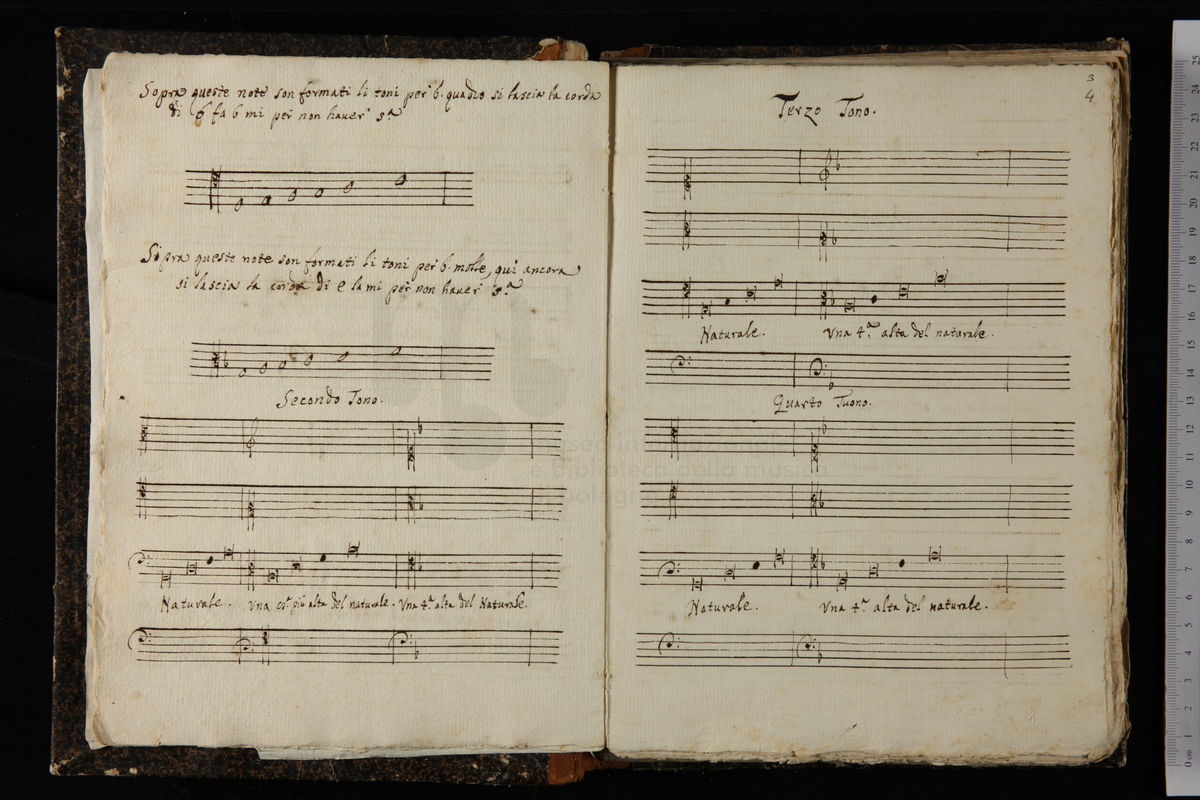 Sopra queste note son formati li toni per b. quadro si lascia la corda
di b fa b mi per non haver 5.a
Sopra queste note son formati li toni per b. molle, qui ancora
si lascia la corda di e la mi per non haver 5.a
Secondo Tono.
Naturale. Una più alta del naturale. Una 4.a alta del Naturale.
3
4
Terzo Tono.
Naturale. Una 4.a alta del naturale.
Quarto Tuono.
Naturale. Una 4.a alta del naturale.
museo in
e biblioteca della musica
bologna
25
24
23
22
21
20
19
18
17
16
15
14
13
12
11
10
9
8
7
6
5
4
3
2
1
0 cm